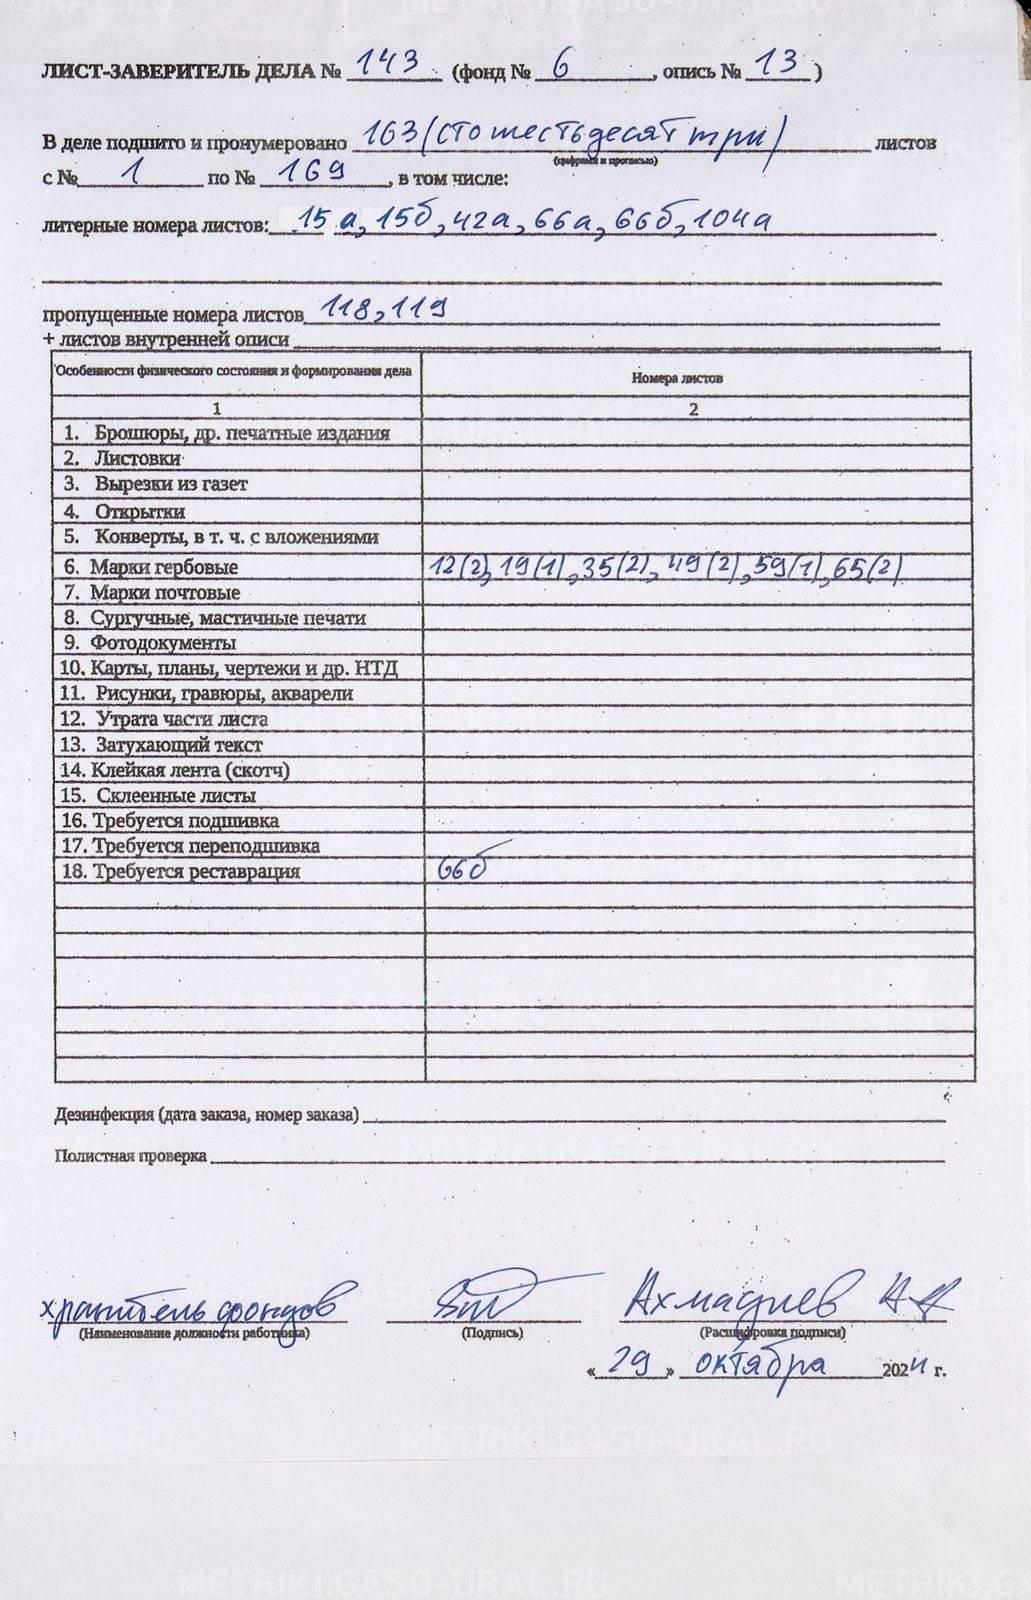 ЛИСТ-ЗАВЕРИТЕЛЬ ДЕЛА № 143 (фонд № 6, опись № 13)
В деле подшито и пронумеровано 163 (сто шестьдесят три) листов
(цифрами и прописью)
с № 1 по № 169, в том числе:
литерные номера листов: 15а, 15б, 42а, 66а, 66б, 104а
пропущенные номера листов 118, 119
+ листов внутренней описи
Особенности физического состояния и формирования дела Номера листов
1 2
1. Брошюры, др. печатные издания
2. Листовки
3. Вырезки из газет
4. Открытки
5. Конверты, в т. ч. с вложениями
6. Марки гербовые 12(2), 19(1), 35(2), 49(2), 59(1), 65(2)
7. Марки почтовые
8. Сургучные, мастичные печати
9. Фотодокументы
10. Карты, планы, чертежи и др. НТД
11. Рисунки, гравюры, акварели
12. Утрата части листа
13. Затухающий текст
14. Клейкая лента (скотч)
15. Склеенные листы
16. Требуется подшивка
17. Требуется переподшивка
18. Требуется реставрация 66б
Дезинфекция (дата заказа, номер заказа)
Полистная проверка
хранитель фондов Ахмадиев
(Наименование должности работника) (Подпись) (Расшифровка подписи)
«29» октября 2024 г.
METRIKI.GASO-URAL.RU